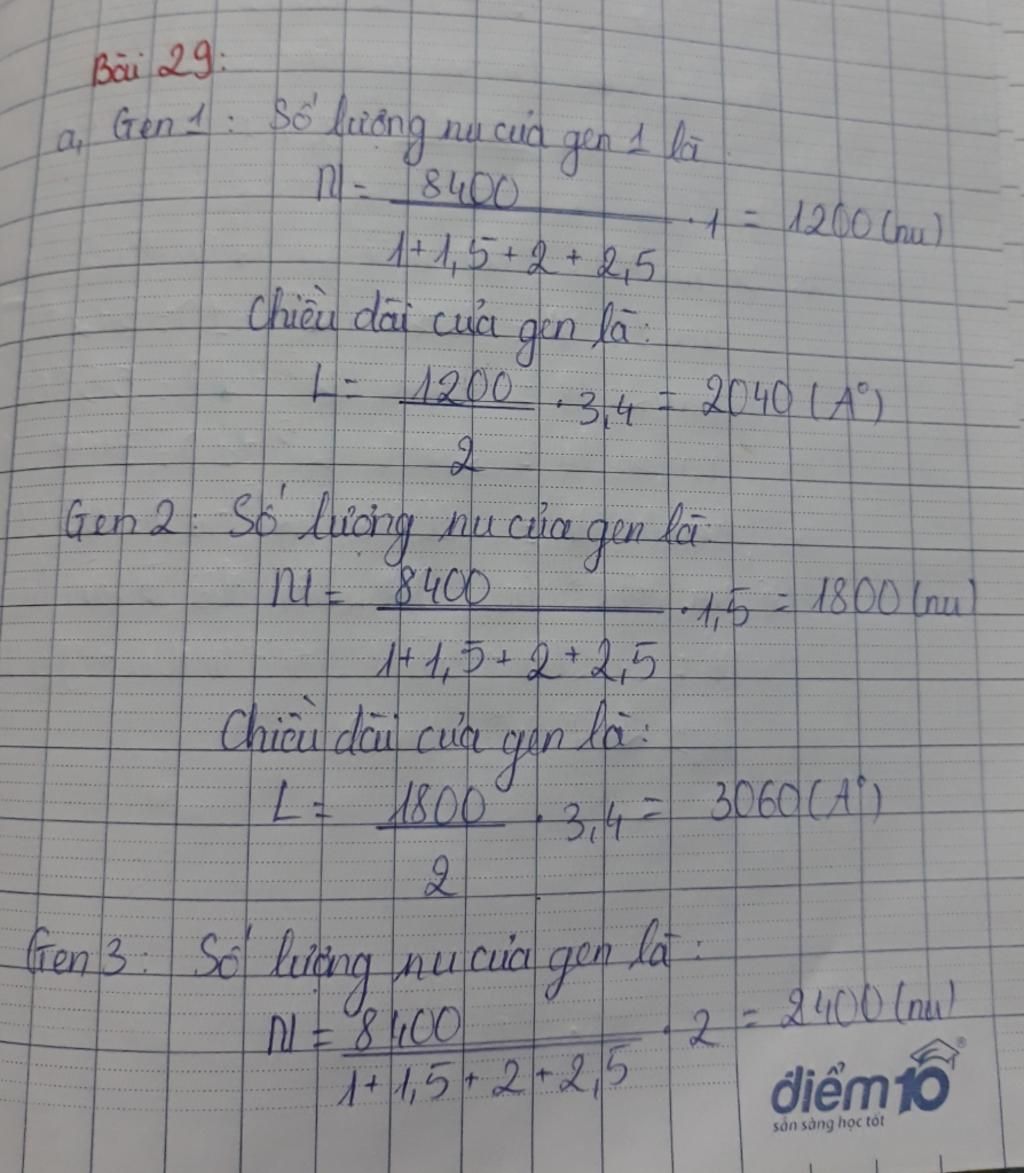 Bài 29:
a, Gen 1 : Số lượng nu của gen 1 là
N = 8400 / 1 + 1,5 + 2 + 2,5 . 1 = 1200 (nu)
Chiều dài của gen là:
L = 1200 / 2 . 3,4 = 2040 (A°)
Gen 2 : Số lượng nu của gen là
N = 8400 / 1 + 1,5 + 2 + 2,5 . 1,5 = 1800 (nu)
Chiều dài của gen là:
L = 1800 / 2 . 3,4 = 3060 (A°)
Gen 3 : Số lượng nu của gen là :
N = 8400 / 1 + 1,5 + 2 + 2,5 . 2 = 2400 (nu)
điểm10®
sẵn sàng học tốt